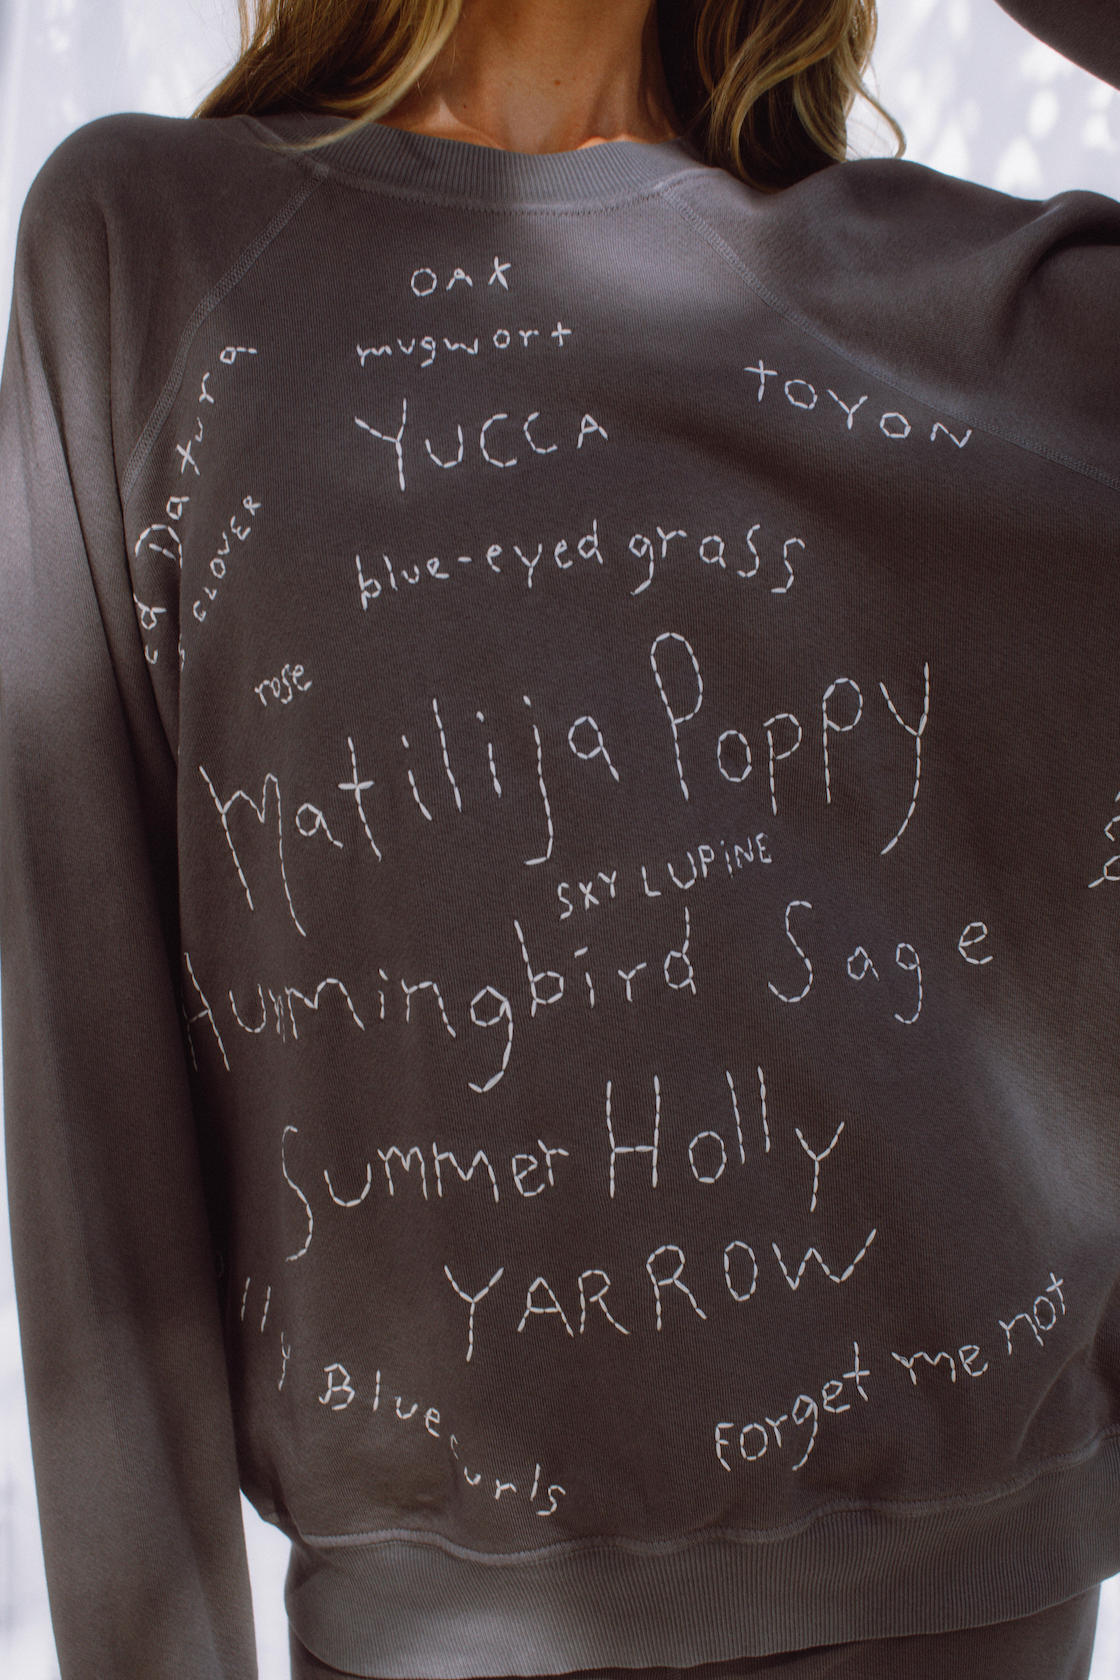 OAK
mugwort
YUCCA
TOYON
Datura
CLOVER
blue-eyed grass
rose
Matilija Poppy
SKY LUPiNE
Hummingbird Sage
Summer Holly
YARROW
lly Blue curls
Forget me not